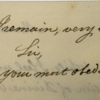 I remain, very
Sir,
your most obed